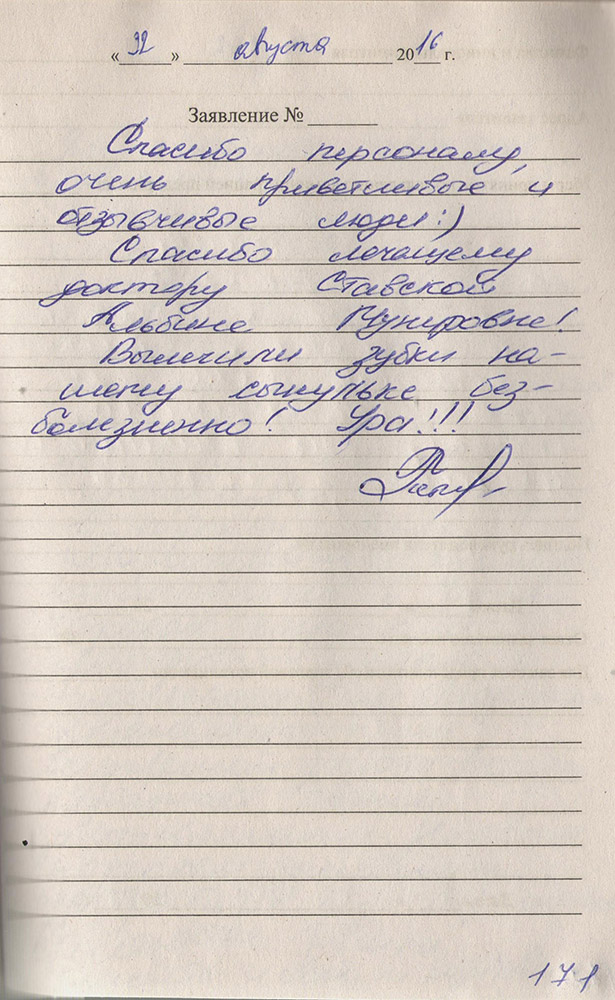 « 22 » августа 2016 г.
Заявление №
Спасибо персоналу,
очень приветливые и
отзывчивые люди :)
Спасибо лечащему
доктору Ставской
Альбине Мунировне!
Вылечили зубки на-
шему сынульке без-
болезненно! Ура!!!
171